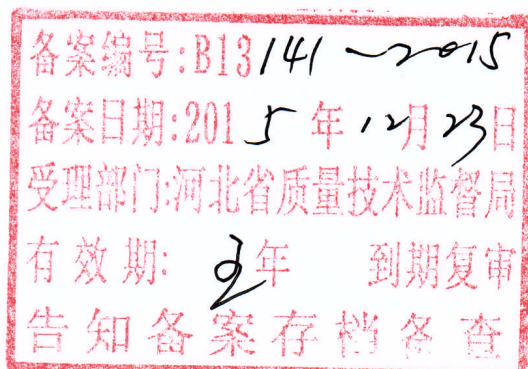 备案编号:B13141-2015
备案日期:2015年12月23日
受理部门:河北省质量技术监督局
有效期: 年 到期复审
告知备案存档备查